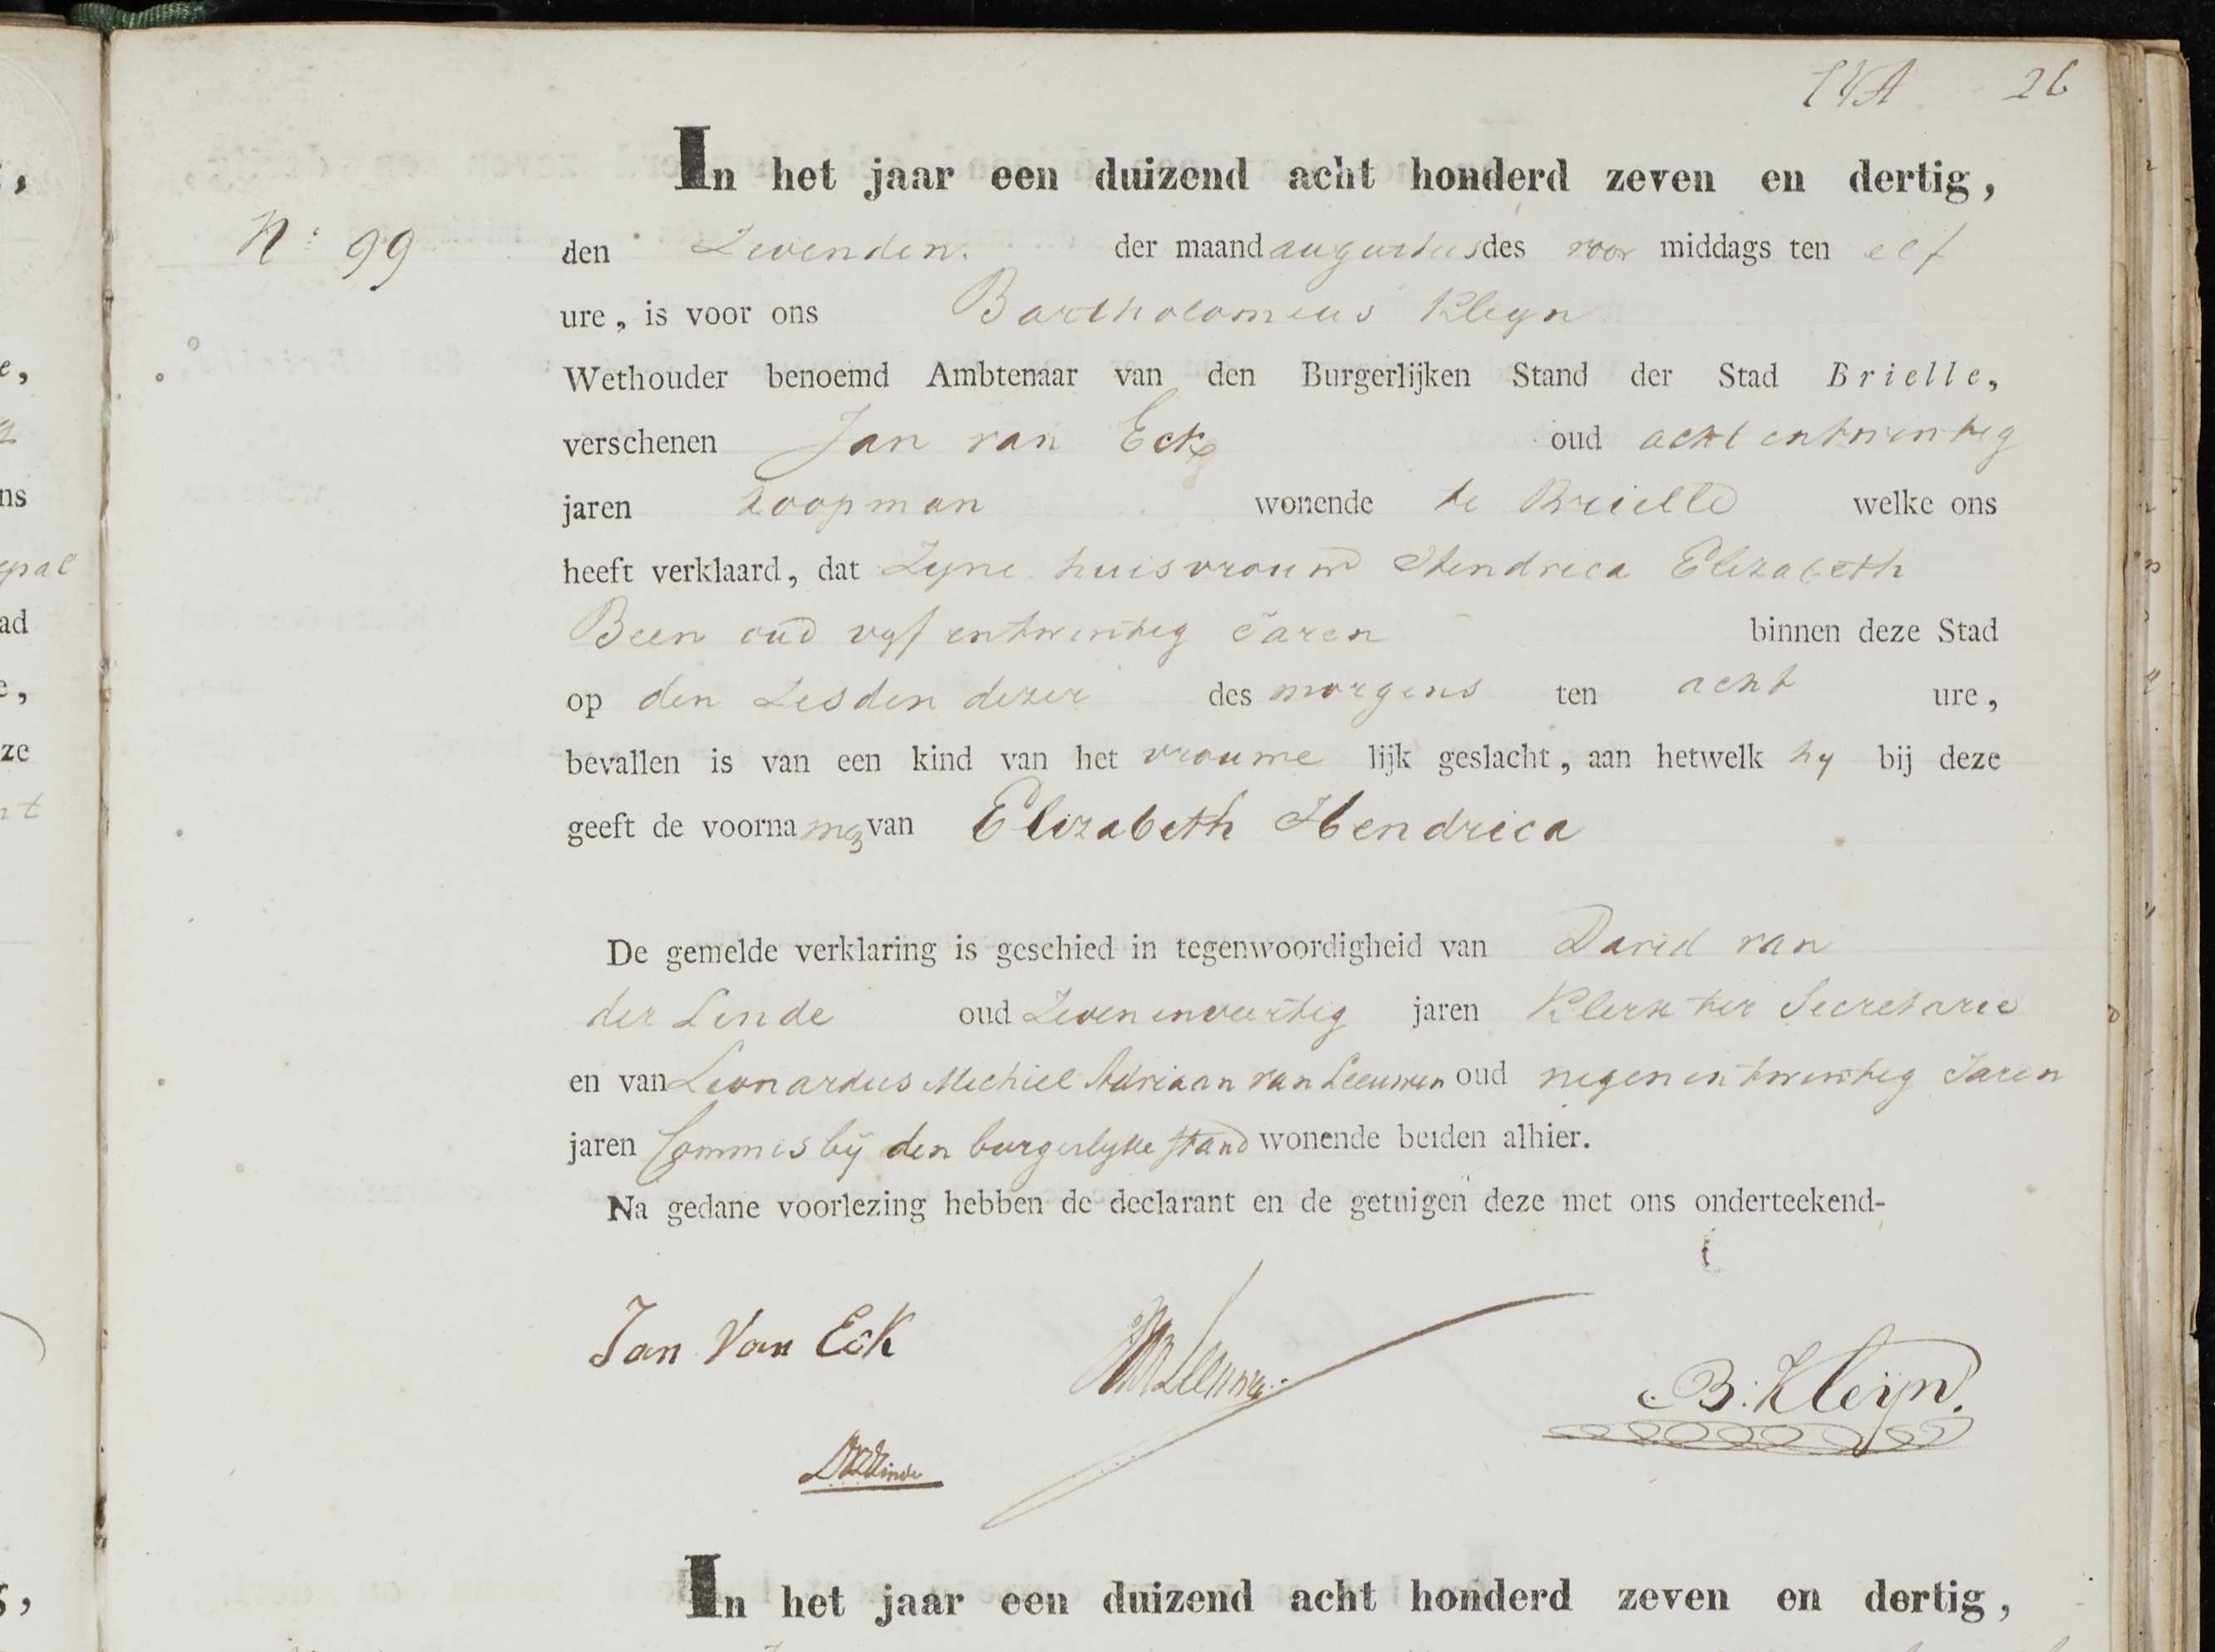 26
In het jaar een duizend acht honderd zeven en dertig,
N: 99
den Zevenden. der maand augustus des voor middags ten elf
ure, is voor ons Bartholomeus Kleyn
Wethouder benoemd Ambtenaar van den Burgerlijken Stand der Stad Brielle,
verschenen Jan van Eck oud acht entwintig
jaren koopman wonende te Brielle welke ons
heeft verklaard, dat Zyne huisvrouw Hendrica Elizabeth
Been oud vyf entwintig Jaren binnen deze Stad
op den Zesden dezer des morgens ten acht ure,
bevallen is van een kind van het vrouwe lijk geslacht, aan hetwelk hy bij deze
geeft de voorna men van Elizabeth Hendrica
De gemelde verklaring is geschied in tegenwoordigheid van David van
der Linde oud Zeven enveertig jaren Klerk ter Secretarie
en van Leonardus Michiel Adriaan van Leeuwen oud negen en twintig Jaren
jaren Commis bij den burgerlyke stand wonende beiden alhier.
Na gedane voorlezing hebben de declarant en de getuigen deze met ons onderteekend-
Jan Van Eck
B. Kleijn.
In het jaar een duizend acht honderd zeven en dertig,